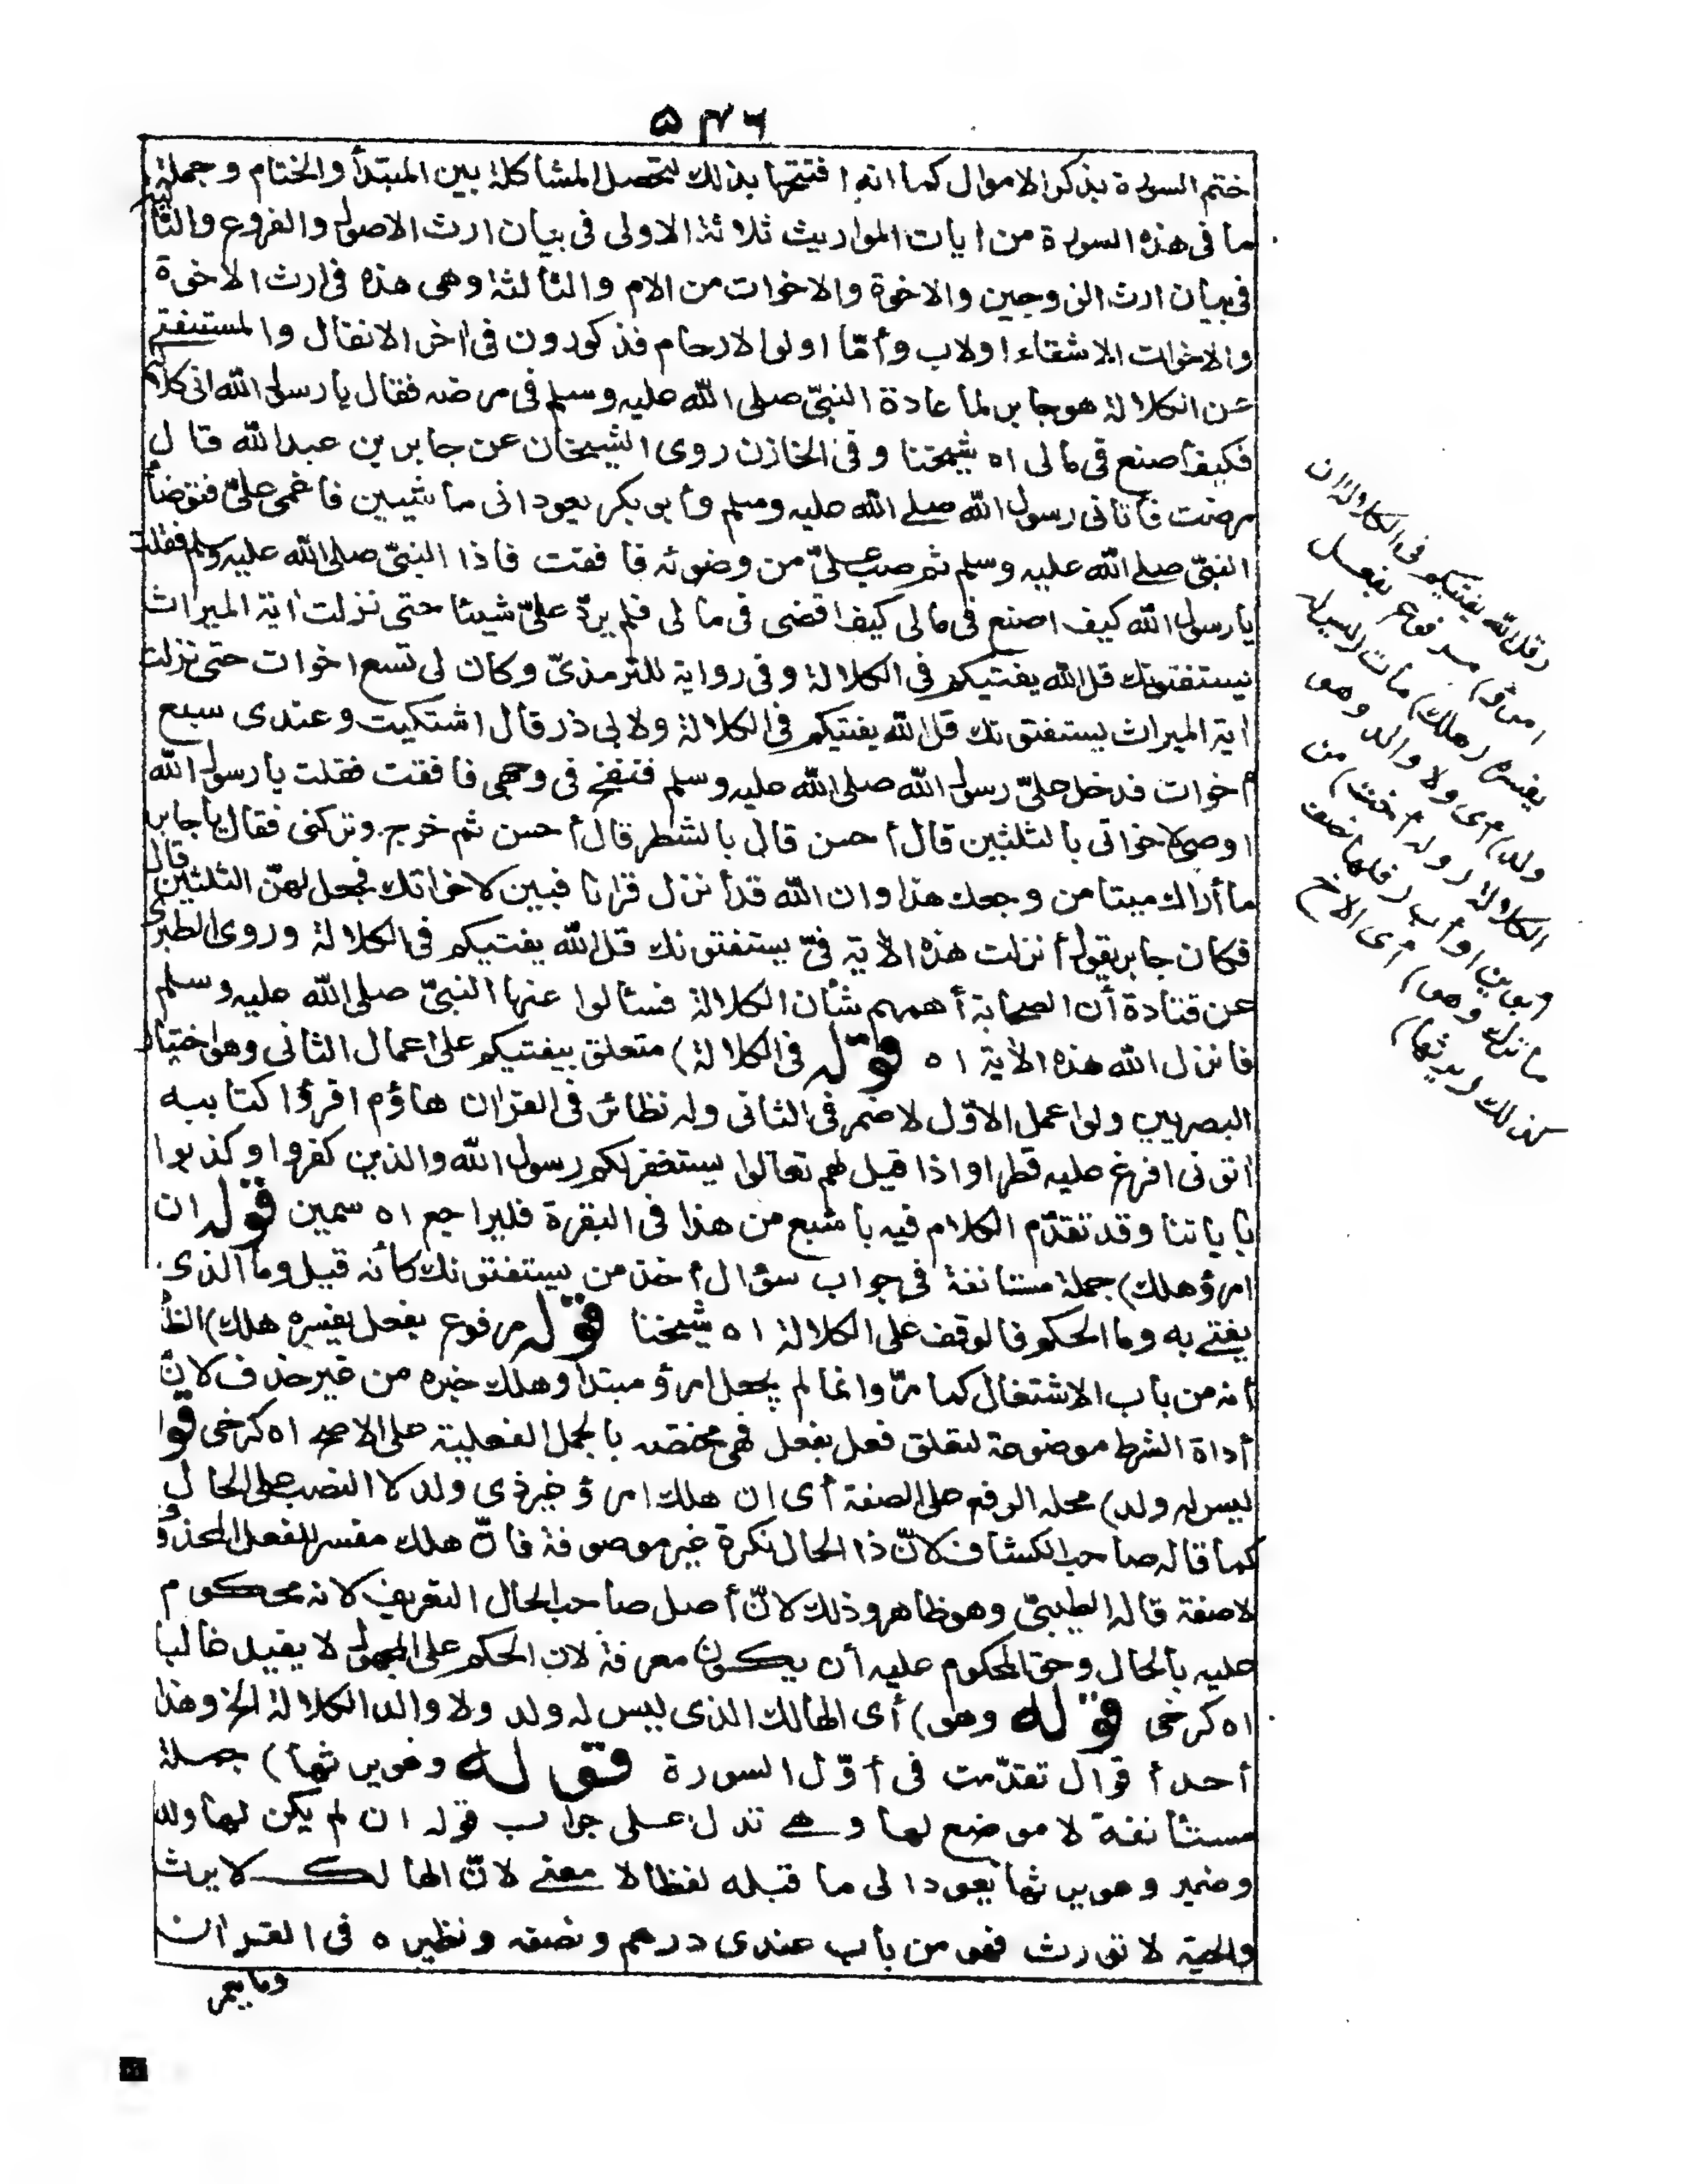 ٥٤٦
ختم السورة بذكر الاموال كما انه افتتحها بذلك لتحصل المشاكلة بين المبتدأ والختام وجملة
ما فى هذه السورة من ايات المواريث ثلاثة الاولى فى بيان ارث الاصول والفروع والثانية
فى بيان ارث الزوجين والاخوة والاخوات من الام والثالثة وهى هذه فى ارث الاخوة
والاخوات الاشقاء اولاب وأمّا اولوا الارحام فذكورون فى اخر الانفال والمستفتى
عن الكلالة هو جابر لما عادة النبىّ صلى الله عليه وسلم فى مرضه فقال يا رسول الله انى كلالة
فكيف أصنع فى مالى اه شيخنا وفى الخازن روى الشيخان عن جابر بن عبد الله قال
مرضت فأتانى رسول الله صلى الله عليه وسلم وأبو بكر يعودانى ماشيين فاغمى علىّ فتوضأ
النبىّ صلى الله عليه وسلم ثم صب علىّ من وضوئه فافقت فاذا النبىّ صلى الله عليه وسلم فقلت
يا رسول الله كيف اصنع فى مالى كيف اقضى فى مالى فلم يردّ علىّ شيئا حتى نزلت اية الميراث
يستفتونك قل الله يفتيكم فى الكلالة وفى رواية للترمذىّ وكان لى تسع اخوات حتى نزلت
اية الميراث يستفتونك قل الله يفتيكم فى الكلالة ولابى ذر قال اشتكيت وعندى سبع
أخوات فدخل علىّ رسول الله صلى الله عليه وسلم فنفخ فى وجهى فافقت فقلت يا رسول الله
اوصى لاخواتى بالثلثين قال أحسن قال بالشطر قال أحسن ثم خرج وتركنى فقال يا جابر
ما أراك ميتا من وجعك هذا وان الله قد أنزل قرانا فبين لاخواتك فجعل لهنّ الثلثين قال
فكان جابر يقول أنزلت هذه الأية فىّ يستفتونك قل الله يفتيكم فى الكلالة وروى الطبرى
عن قتادة أن الصحابة أهمهم شأن الكلالة فسألوا عنها النبىّ صلى الله عليه وسلم
فانزل الله هذه الأية اه قوله فى الكلالة) متعلق بيفتيكم على اعمال الثانى وهو اختيار
البصريين ولو اعمل الاوّل لاضمر فى الثانى وله نظائر فى القران هاؤم اقرؤا كتابيه
اتونى افرغ عليه قطرا واذا قيل لهم تعالوا يستغفر لكم رسول الله والذين كفروا وكذبوا
باياتنا وقد تقدّم الكلام فيه باشبع من هذا فى البقرة فليراجع اه سمين قوله ان
امرؤ هلك) جملة مستانفة فى جواب سؤال أخذ من يستفتونك كأنه قيل وما الذى
يفتى به وما الحكم فالوقف على الكلالة اه شيخنا قوله مرفوع بفعل يفسره هلك) الظا
أنه من باب الاشتغال كما مرّ وانما لم يجعل امرؤ مبتدأ وهلك خبره من غير حذف لانّ
أداة الشرط موضوعة لتعلق فعل بفعل فهى مختصه بالجمل الفعلية على الاصح اه كرخى قو
ليس له ولد) محله الرفع على الصفة أى ان هلك امرؤ غير ذى ولد لا النصب على الحال
كما قاله صاحب الكشاف لانّ ذا الحال نكرة غير موصوفة فانّ هلك مفسر للفعل المحذوف
لا صفة قاله الطيبىّ وهو ظاهر وذلك لانّ أصل صاحب الحال التعريف لانه محكوم
عليه بالحال وحق المحكوم عليه أن يكون معرفة لان الحكم على المجهول لا يفيد غالبا
اه كرخى قوله وهو) أى الهالك الذى ليس له ولد ولا والد الكلالة الخ وهذا
أحد أقوال تقدّمت فى أوّل السورة قوله وهو يرثها) جملة
مستأنفة لا موضع لها وهى تدل على جواب قوله ان لم يكن لها ولد
وضمير وهو يرثها يعود الى ما قبله لفظا لا معنى لانّ الهالك لا يرث
والحية لا تورث فهو من باب عندى درهم ونصفه ونظيره فى القران
وما يعمر
(قل الله يفتيكم فى الكلالة ان
امرؤ) مرفوع بفعل
يفسره (هلك) مات (ليس له
ولد) أى ولا والد وهو
الكلالة (وله أخت) من
أبوين أو أب (فلها نصف
ما ترك وهو) أى الاخ
كذلك (يرثها)